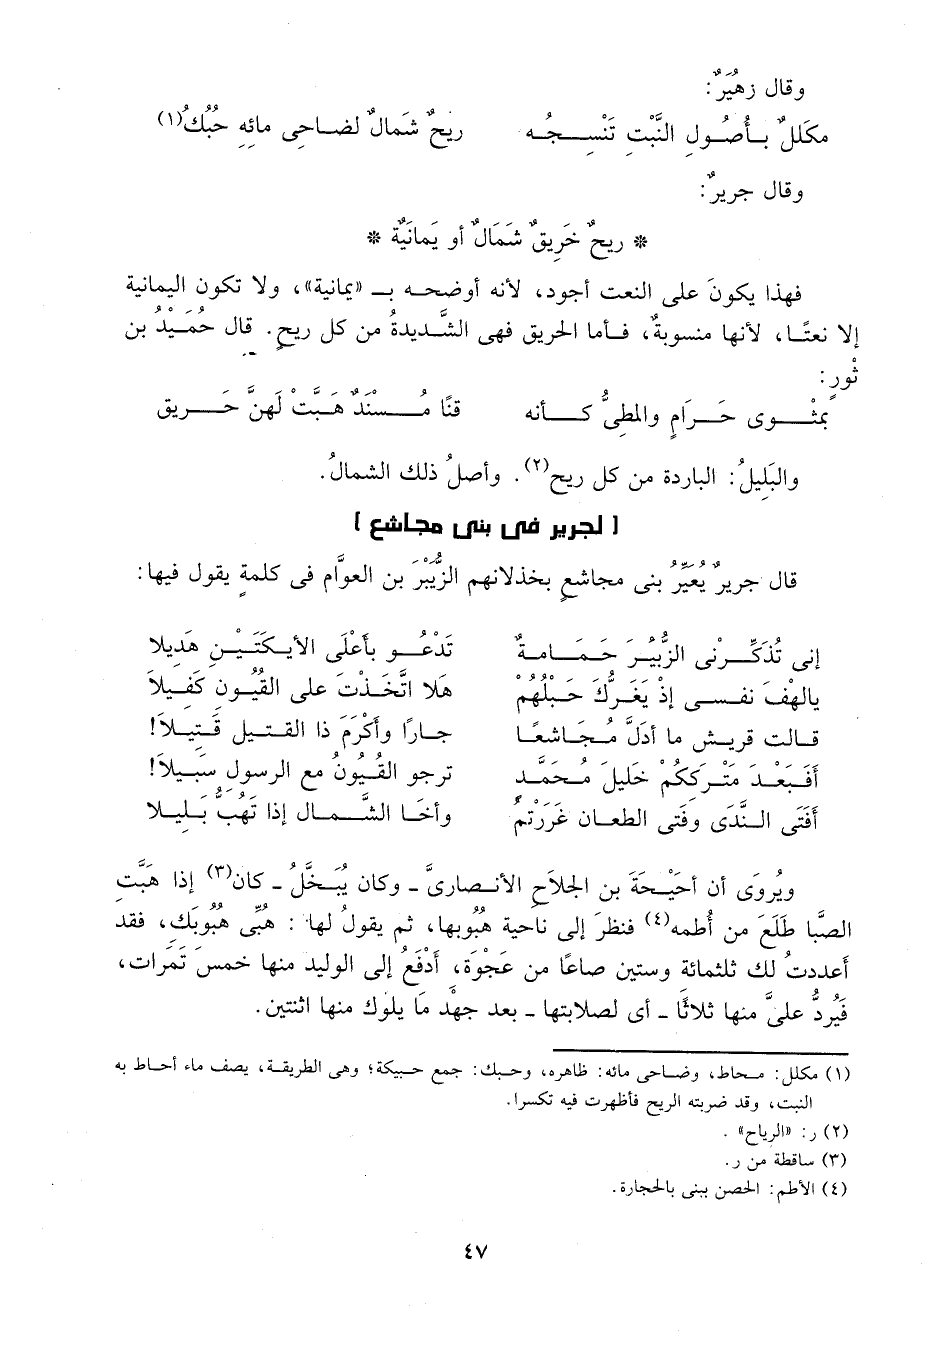 وقال زهُيَرٌ:
مكَللٌ بـأصُـولِ النَّبْتِ تَنْسِـجُـه    ريَحٌ شَمالٌ لضـاحِى مائِهِ حُبُكُ(١)
وقال جريرٌ:
* ريحٌ خَرِيقٌ شَمَالٌ أو يَمانَيةٌ *
فهذا يكونَ على النعت أجود، لأنه أوضحـه بـ «يمانية»، ولا تكون اليمانية
إلا نعتًـا، لأنها منسوبةٌ، فـأما الخريق فهى الشَّديدةُ من كل ريحٍ. قال حمَـيْدُ بن
ثْورٍ:
بمثْـوى حَـرَامٍ والمَطِىُّ كـأنه    قنًا مُـسْنَدٌ هَبَّتْ لَهنَّ خَـرِيق
والبَلِيلُ: الباردة من كل ريح(٢). وأصلُ ذلك الشمالُ.
[ لجرير فى بنى مجاشع ]
قال جريرٌ يُعيَّرُ بنى مجاشعٍ بخذلانهم الزُّبيْرَ بن العوَّام فى كلمةٍ يقول فيها:
إنى تُذكِّـرنى الزُّبَيْـرَ حَـمَـامـةٌ    تَدْعُـو بأعْلَى الأيـكَتَـيْنِ هَديلا
يالهْفَ نفـسـى إذْ يَغرُّكَ حَبلُهُمْ    هَلا اتَّخَـذْتَ على القُيُـونِ كَفِيلاَ
قـالت قريـش ما أذلَّ مُـجَاشعًـا    جـارًا وأكْرَمَ ذا القـتـيل قَـتِيلاَ!
أفَـبَعْدَ مَتْرَككُمْ خليلَ مُـحمَّـد    ترجو القُيُونُ مع الرسول سَبيلاَ!
أفَتَى النَّدَى وفَتى الطعـان غَرَرْتمُ    وأخَـا الشَّـمـال إذَا تَهُبُّ بَلِيلا
ويُروَى أن أحَيْـحَةَ بن الجلاَح الأنصارىَّ ـ وكان يُبَـخَّلُ ـ كان(٣) إذا هَبَّت
الصَّبا طَلَعَ من أُطمه(٤) فنظرَ إلى ناحية هُبُوبها، ثم يقولُ لها: هُبِّى هُبُوبَك، فقد
أعددتُ لك ثلثمائة وستين صاعًا من عَجْوَة، أدْفَعُ إلى الوليد منها خمسَ تَمَرات،
فَيُردُّ علىَّ منها ثلاثًا ـ أى لصلابتها ـ بعد جهْدٍ مَا يلوك منها اثنتين.
(١) مكلل: محاط، وضـاحى مائه: ظاهره، وحـبك: جمع حـبيكة؛ وهى الطريقـة، يصف ماء أحـاط به
النبت، وقد ضربته الريح فأظهرت فيه تكسرا.
(٢) ر: «الرياح».
(٣) ساقطة من ر.
(٤) الأطم: الحصن يبنى بالحجارة.
٤٧